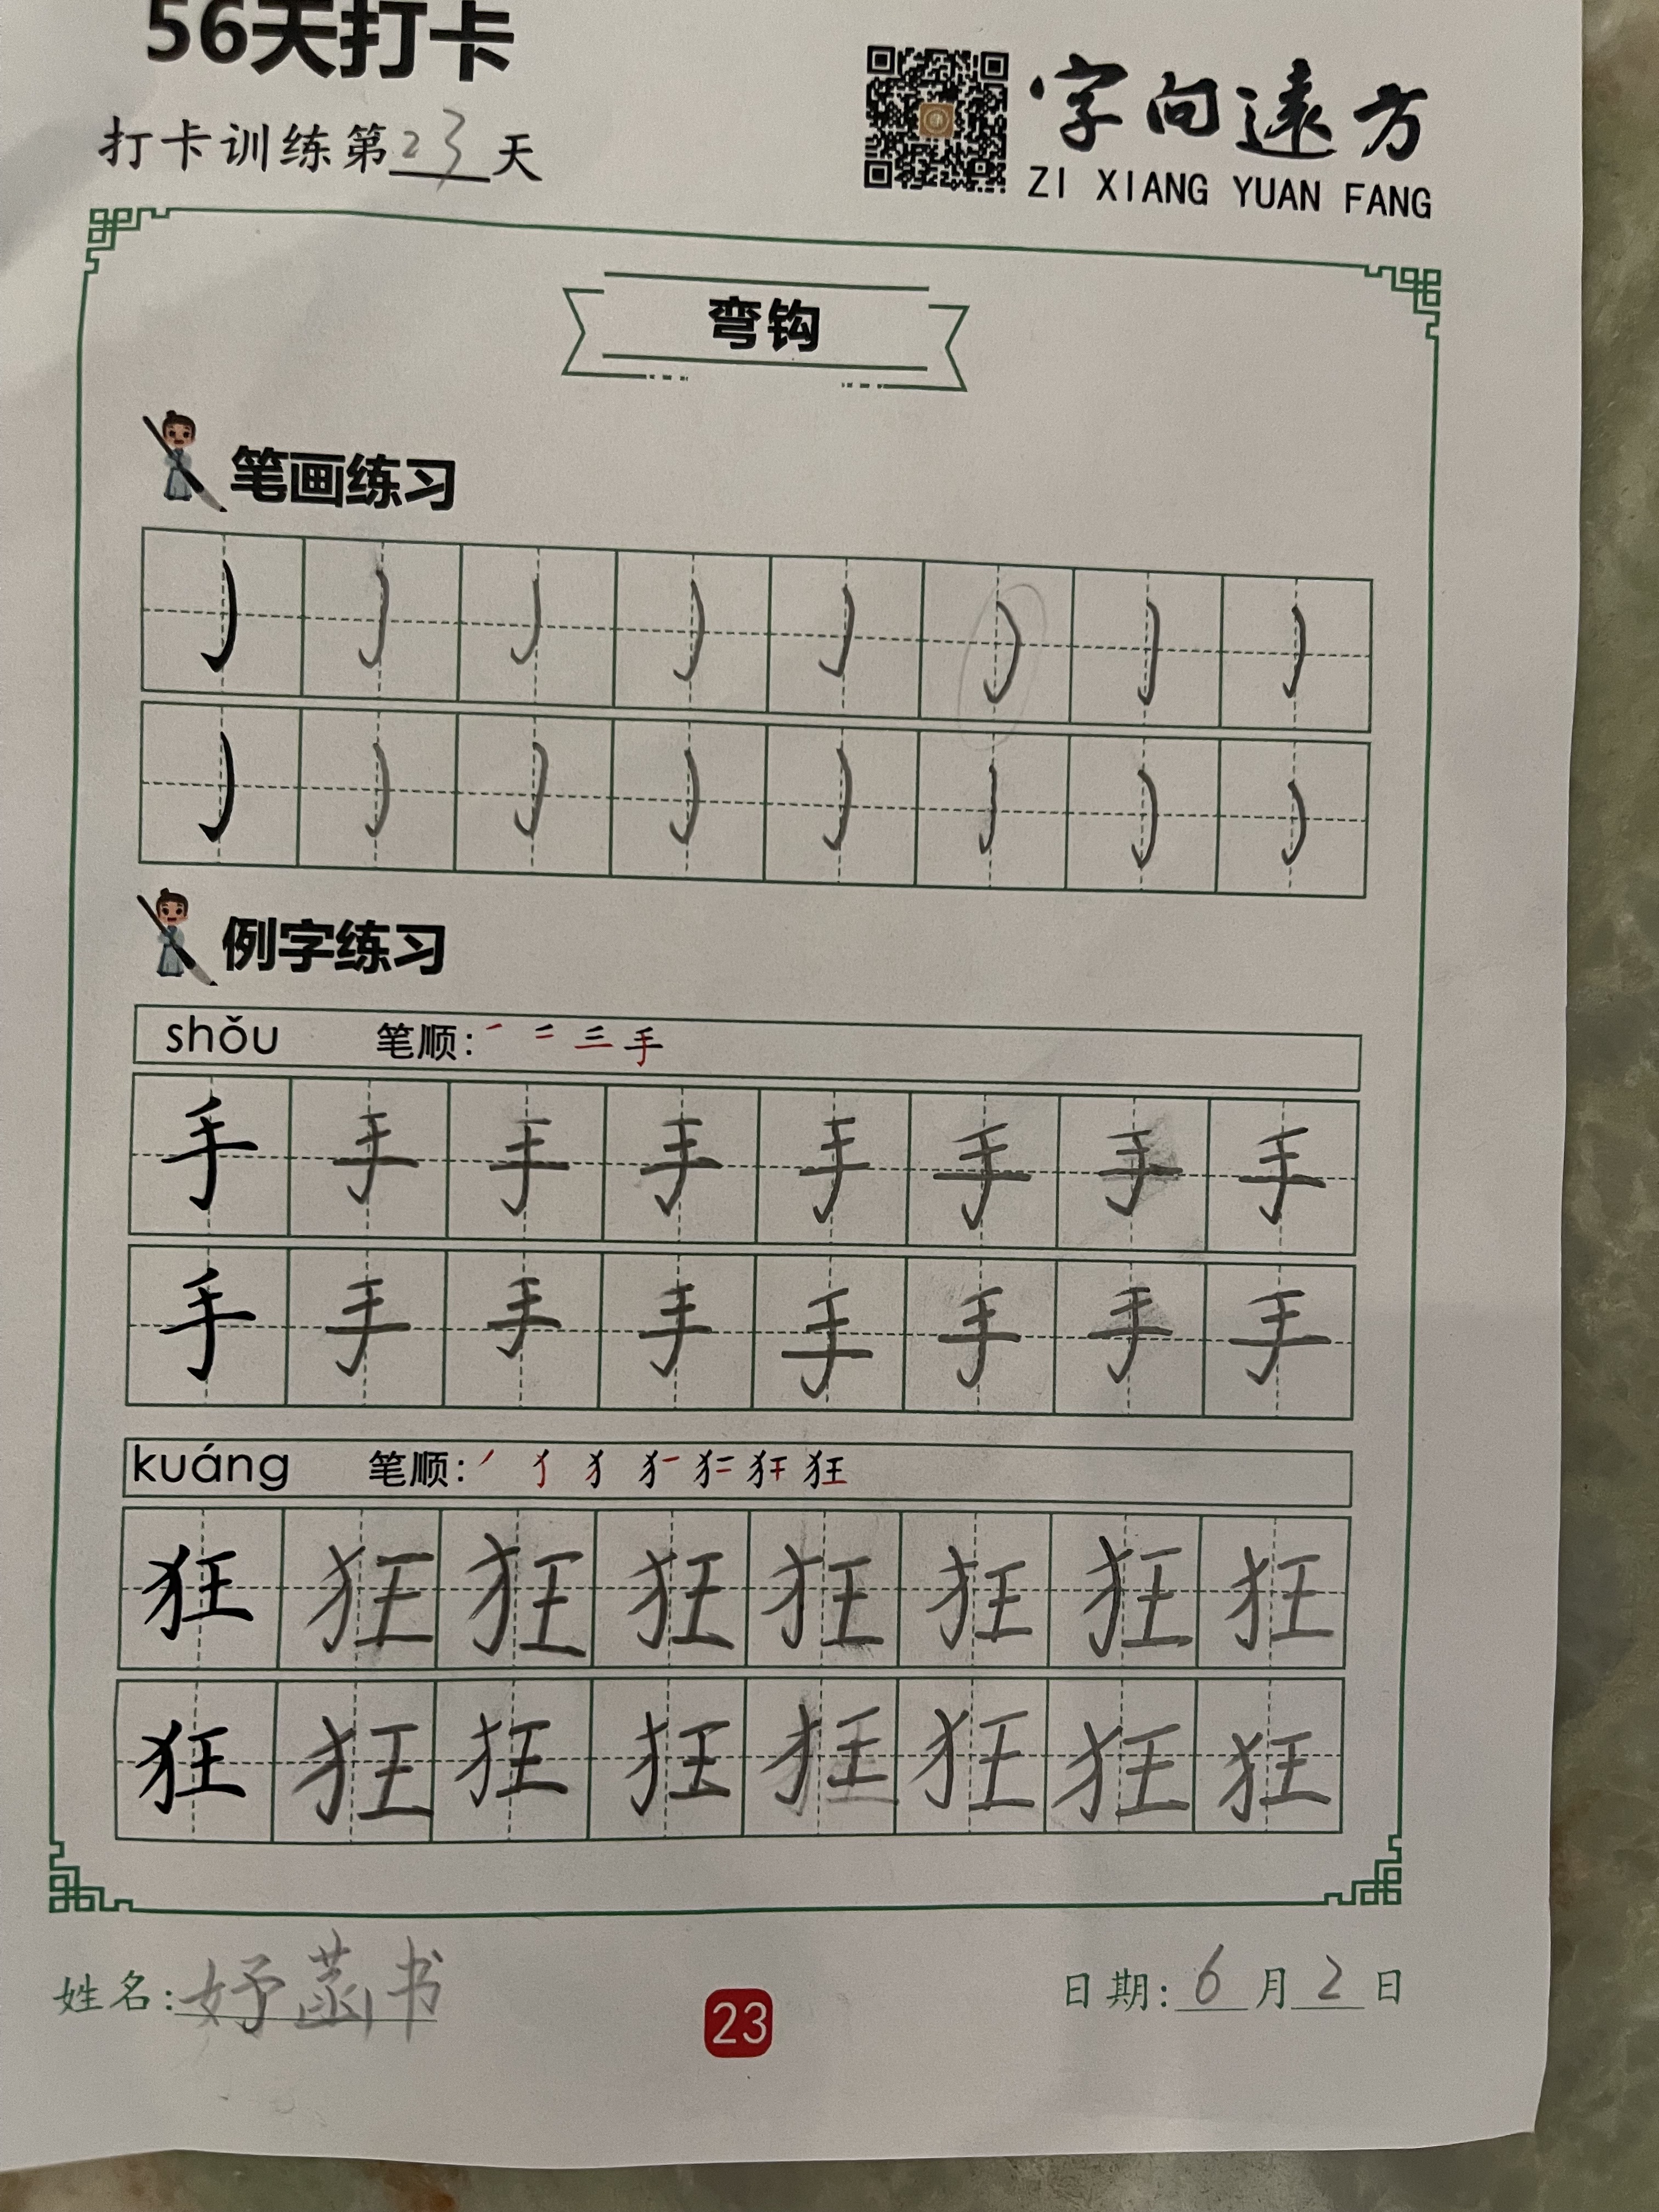 56天打卡
打卡训练第23天
字向远方
ZI XIANG YUAN FANG
弯钩
笔画练习
例字练习
shǒu 笔顺: 手
手 手 手 手 手 手 手 手
手 手 手 手 手 手 手 手
kuáng 笔顺: 狂
狂 狂 狂 狂 狂 狂 狂 狂
狂 狂 狂 狂 狂 狂 狂 狂
姓名: 妤菡书
23
日期: 6月2日